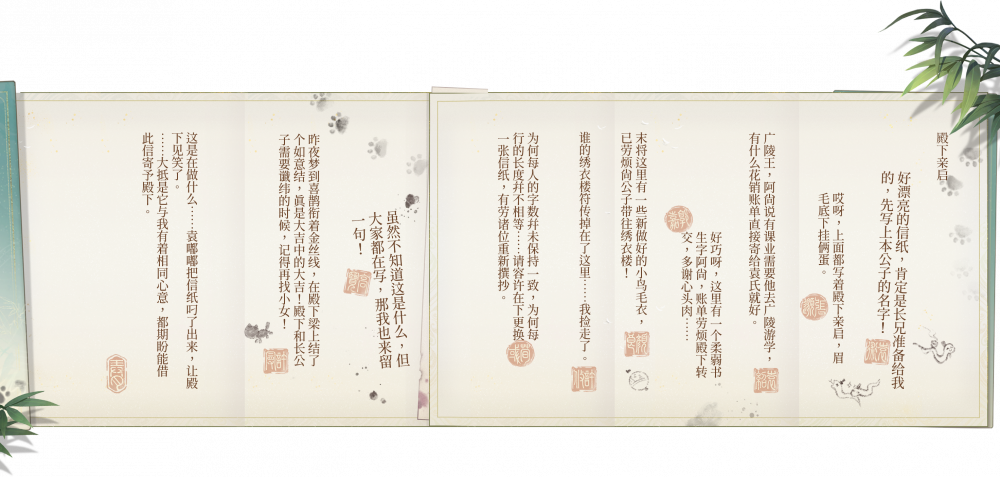 殿下亲启
好漂亮的信纸，肯定是长兄准备给我
的，先写上本公子的名字！
哎呀，上面都写着殿下亲启，眉
毛底下挂俩蛋。
广陵王，阿尚说有课业需要他去广陵游学，
有什么花销账单直接寄给袁氏就好。
好巧呀，这里有一个柔弱书
生字阿尚，账单劳烦殿下转
交，多谢心头肉……
末将这里有一些新做好的小鸟毛衣，
已劳烦尚公子带往绣衣楼！
谁的绣衣楼符传掉在了这里……我捡走了。
为何每人的字数并未保持一致，为何每
行的长度并不相等……请容许在下更换
一张信纸，有劳诸位重新撰抄。
虽然不知道这是什么，但
大家都在写，那我也来留
一句！
昨夜梦到喜鹊衔着金丝线，在殿下梁上结了
个如意结，真是大吉中的大吉！殿下和长公
子需要谶纬的时候，记得再找小女！
这是在做什么……袁嘟嘟把信纸叼了出来，让殿
下见笑了。
……大抵是它与我有着相同心意，都期盼能借
此信寄予殿下。